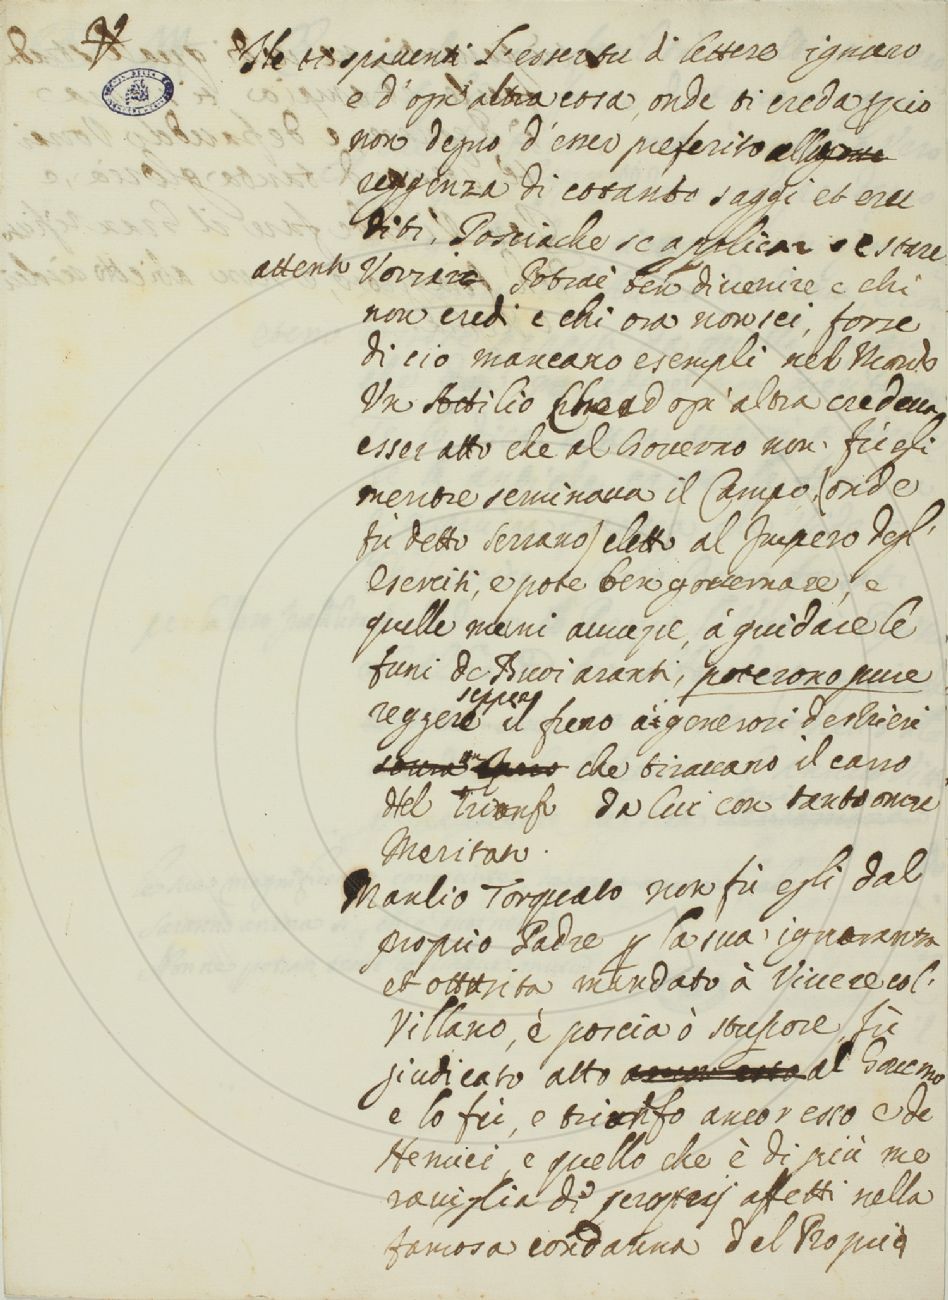 Ne ti spaventi L'essersu di lettere ignaro
e d'ogn'altra cosa, onde ti creda
non degno d'esser preferito alla
reggenza di cotanto saggi et eru
diti, Posciache se applicar e stare
attento Vorrai Potrai ben divenire e chi
non credi e chi ora non sei, forse
di cio mancano esempli nel Mondo
Un Attilio che ad ogn'altra credeva
esser atto che al Governo non fù egli
mentre seminava il Campo, (onde
fù detto Serrano) eletto al Impero degl'
Eserciti, e pote ben governare, e
quelle mani auuezze, à guidare le
funi de Buoi aranti, poterono pure
seppero
reggere il freno ai generosi destrieri
che tiravano il carro
del Trionfo da lui con tanto onore
Meritato.
Manlio Torquato non fù egli dal
proprio Padre p la sua ignoranza
et ottusita mandato à Vivere col
Villano, è poscia ò stupore, fù
giudicato atto al Governo
e lo fù, e trionfo ancor esso de
Nemici, e quello che è di più me
raviglia di proprij affetti nella
famosa condanna del Proprio